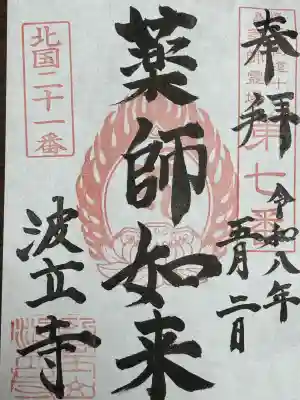 奉拝
第七番
令和八年
五月二日
薬師如来
北国二十一番
波立寺